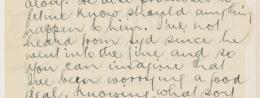 let me know should anything
happen to him. I've not
heard from Syd since he
went into the line and so
you can imagine that
I've been worrying a good
deal, knowing what sort